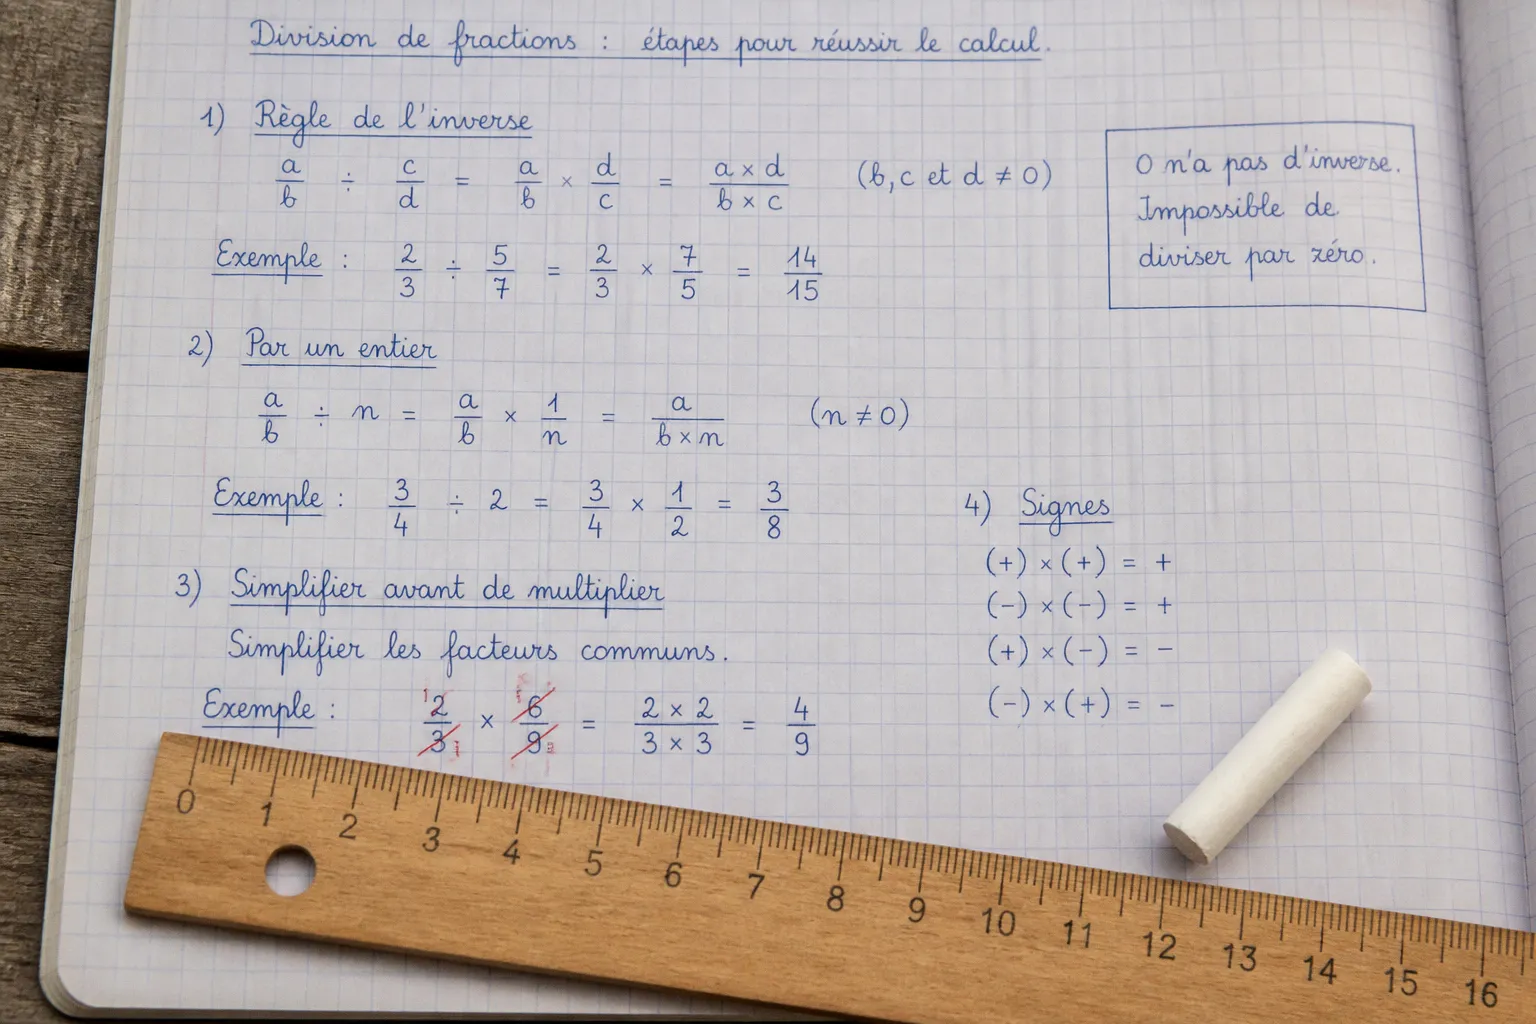 Division de fractions : étapes pour réussir le calcul.
1) Règle de l'inverse
a/b ÷ c/d = a/b × d/c = a × d / b × c (b, c et d ≠ 0)
0 n'a pas d'inverse.
Impossible de
diviser par zéro.
Exemple : 2/3 ÷ 5/7 = 2/3 × 7/5 = 14/15
2) Par un entier
a/b ÷ n = a/b × 1/n = a / b × n (n ≠ 0)
Exemple : 3/4 ÷ 2 = 3/4 × 1/2 = 3/8
3) Simplifier avant de multiplier
Simplifier les facteurs communs.
Exemple : 2/3 × 6/9 = 2 × 2 / 3 × 3 = 4/9
4) Signes
(+) × (+) = +
(-) × (-) = +
(+) × (-) = -
(-) × (+) = -
0 1 2 3 4 5 6 7 8 9 10 11 12 13 14 15 16